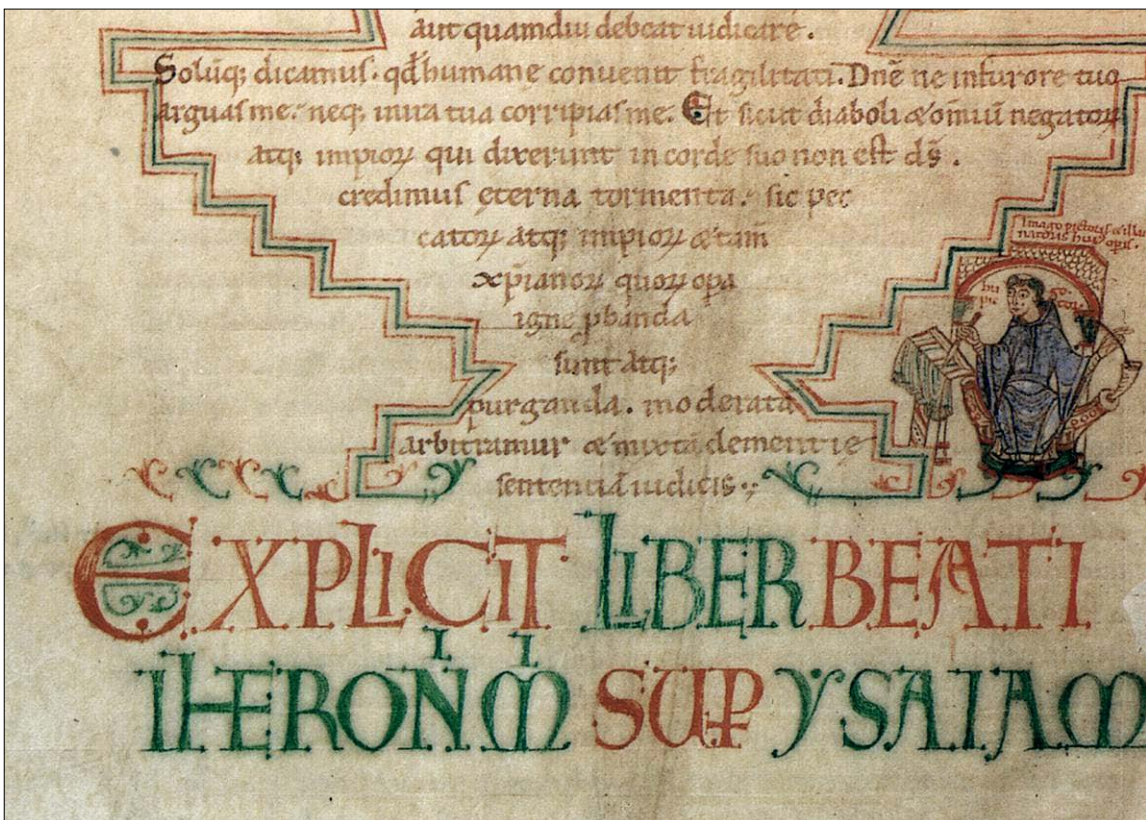 aut quamdiu debeat iudicare.
Soliq; dicamus. qđ humanę convenit fragilitati. Dnē ne in furore tuo
arguas me. neq; in ira tua corripias me. Et sicut diaboli & om̄iū negatoꝝ
atq; impioꝝ qui dixerunt in corde suo non est d̄s.
credimus ęterna tormenta. sic pec
catoꝝ atq; impioꝝ & tam̄
xp̄ianoꝝ quoꝝ opa
igne ꝓbanda
sunt atq;
purganda. moderatā
arbitramur & mixtā clementię
sententiā iudicis.
Imago pictoris & illumi
natoris huiꝰ opis.
hu
go
pic
tor
EXPLICIT LIBER BEATI
IHERONIMI SUP̱ YSAIAM